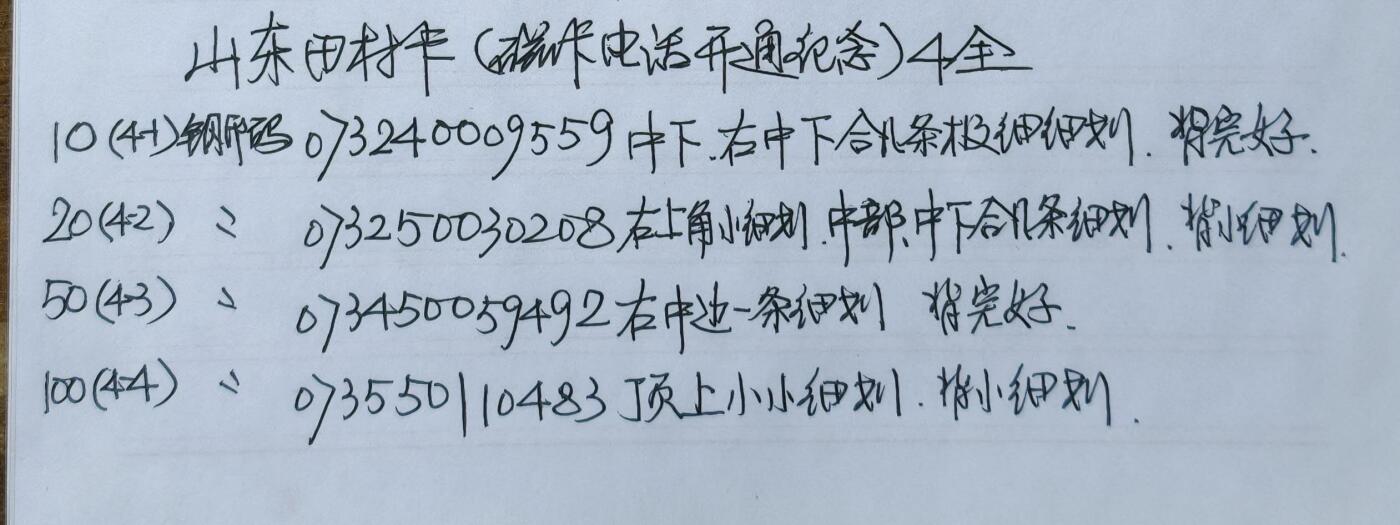 山东田村卡(磁卡电话开通纪念)4全
10(4-1)钢印码 073240009559中下.右中下合几条极细细划.背完好.
20(4-2) 〃 073250030208右上角小细划.中部、中下合几条细划.背小细划.
50(4-3) 〃 073450059492右中边一条细划 背完好.
100(4-4) 〃 073550110483顶上小小细划.背小细划.